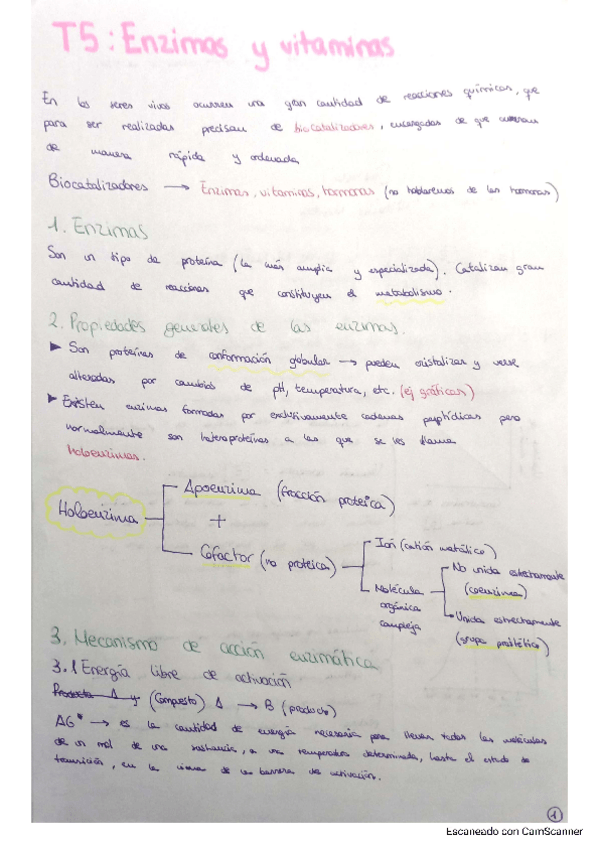 T5: Enzimas y vitaminas
En los seres vivos ocurren una gran cantidad de reacciones químicas, que
para ser realizadas precisan de biocatalizadores, encargados de que ocurran
de manera rápida y ordenada
Biocatalizadores → Enzimas, vitaminas, hormonas (no hablaremos de las hormonas)
1. Enzimas
Son un tipo de proteína (la más amplia y especializada). Catalizan gran
cantidad de reacciones que constituyen el metabolismo.
2. Propiedades generales de las enzimas.
► Son proteínas de conformación globular → pueden cristalizar y verse
alteradas por cambios de pH, temperatura, etc. (ej gráficas)
► Existen enzimas formadas por exclusivamente cadenas peptídicas pero
normalmente son heteroproteínas a las que se les llama
holoenzimas.
Holoenzima
Apoenzima (fracción proteica)
+
Cofactor (no proteica)
Ión (catión metálico)
Molécula
orgánica
compleja
No unida estrechamente
(coenzima)
Unida estrechamente
(grupo prostético)
3. Mecanismo de acción enzimática
3.1 Energía libre de activación
(Compuesto) A → B (producto)
ΔG* → es la cantidad de energía necesaria para llevar todas las moléculas
de un mol de una sustancia, a una temperatura determinada, hasta el estado de
transición, en la cima de la barrera de activación.
1
Escaneado con CamScanner